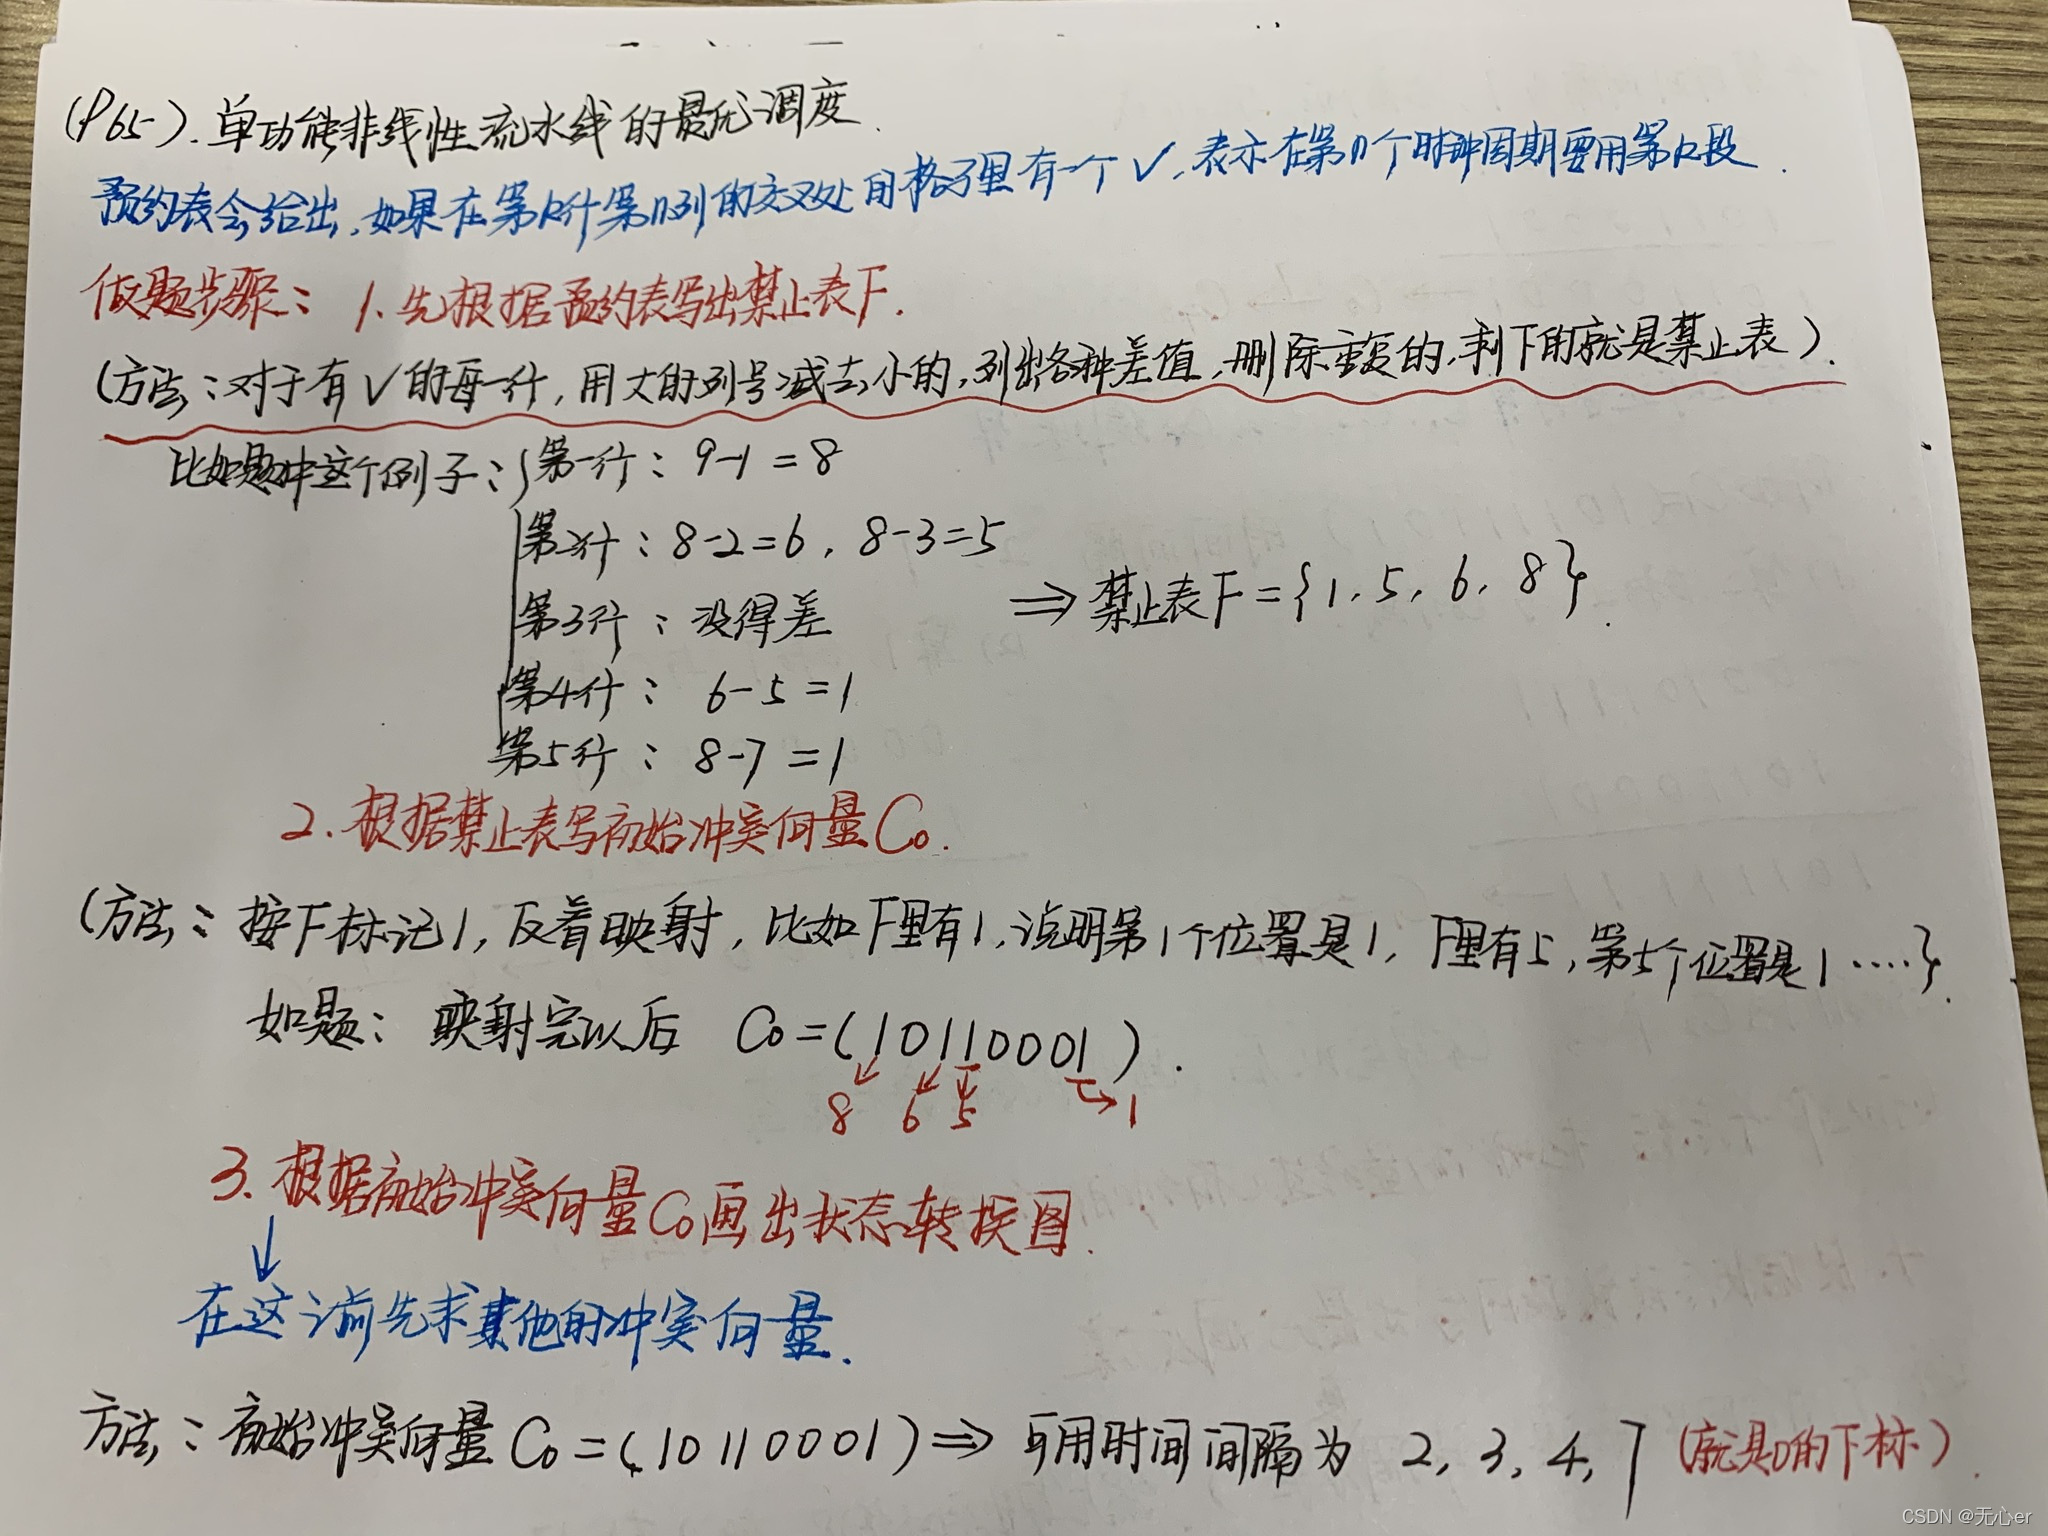 (P65).单功能非线性流水线的最优调度.
预约表会给出,如果在第k行第n列的交叉处的格子里有一个√,表示在第n个时钟周期要用第k段.
做题步骤: 1.先根据预约表写出禁止表F.
(方法:对于有√的每一行,用大的列号减去小的,列出各种差值,删除重复的,剩下的就是禁止表).
比如题中这个例子:{第一行: 9-1=8
第2行: 8-2=6, 8-3=5
第3行: 没得差
⇒禁止表F={1, 5, 6, 8}.
第4行: 6-5=1
第5行: 8-7=1
2.根据禁止表写初始冲突向量C0.
(方法:按F标记1,反着映射,比如F里有1,说明第1个位置是1,F里有5,第5个位置是1……).
如题: 映射完以后 C0=(10110001).
8 6 5 1
3.根据初始冲突向量C0画出状态转换图.
↓
在这之前先求其他的冲突向量.
方法:初始冲突向量C0=(10110001)⇒可用时间间隔为 2, 3, 4, 7 (就是0的下标).
CSDN @无心er